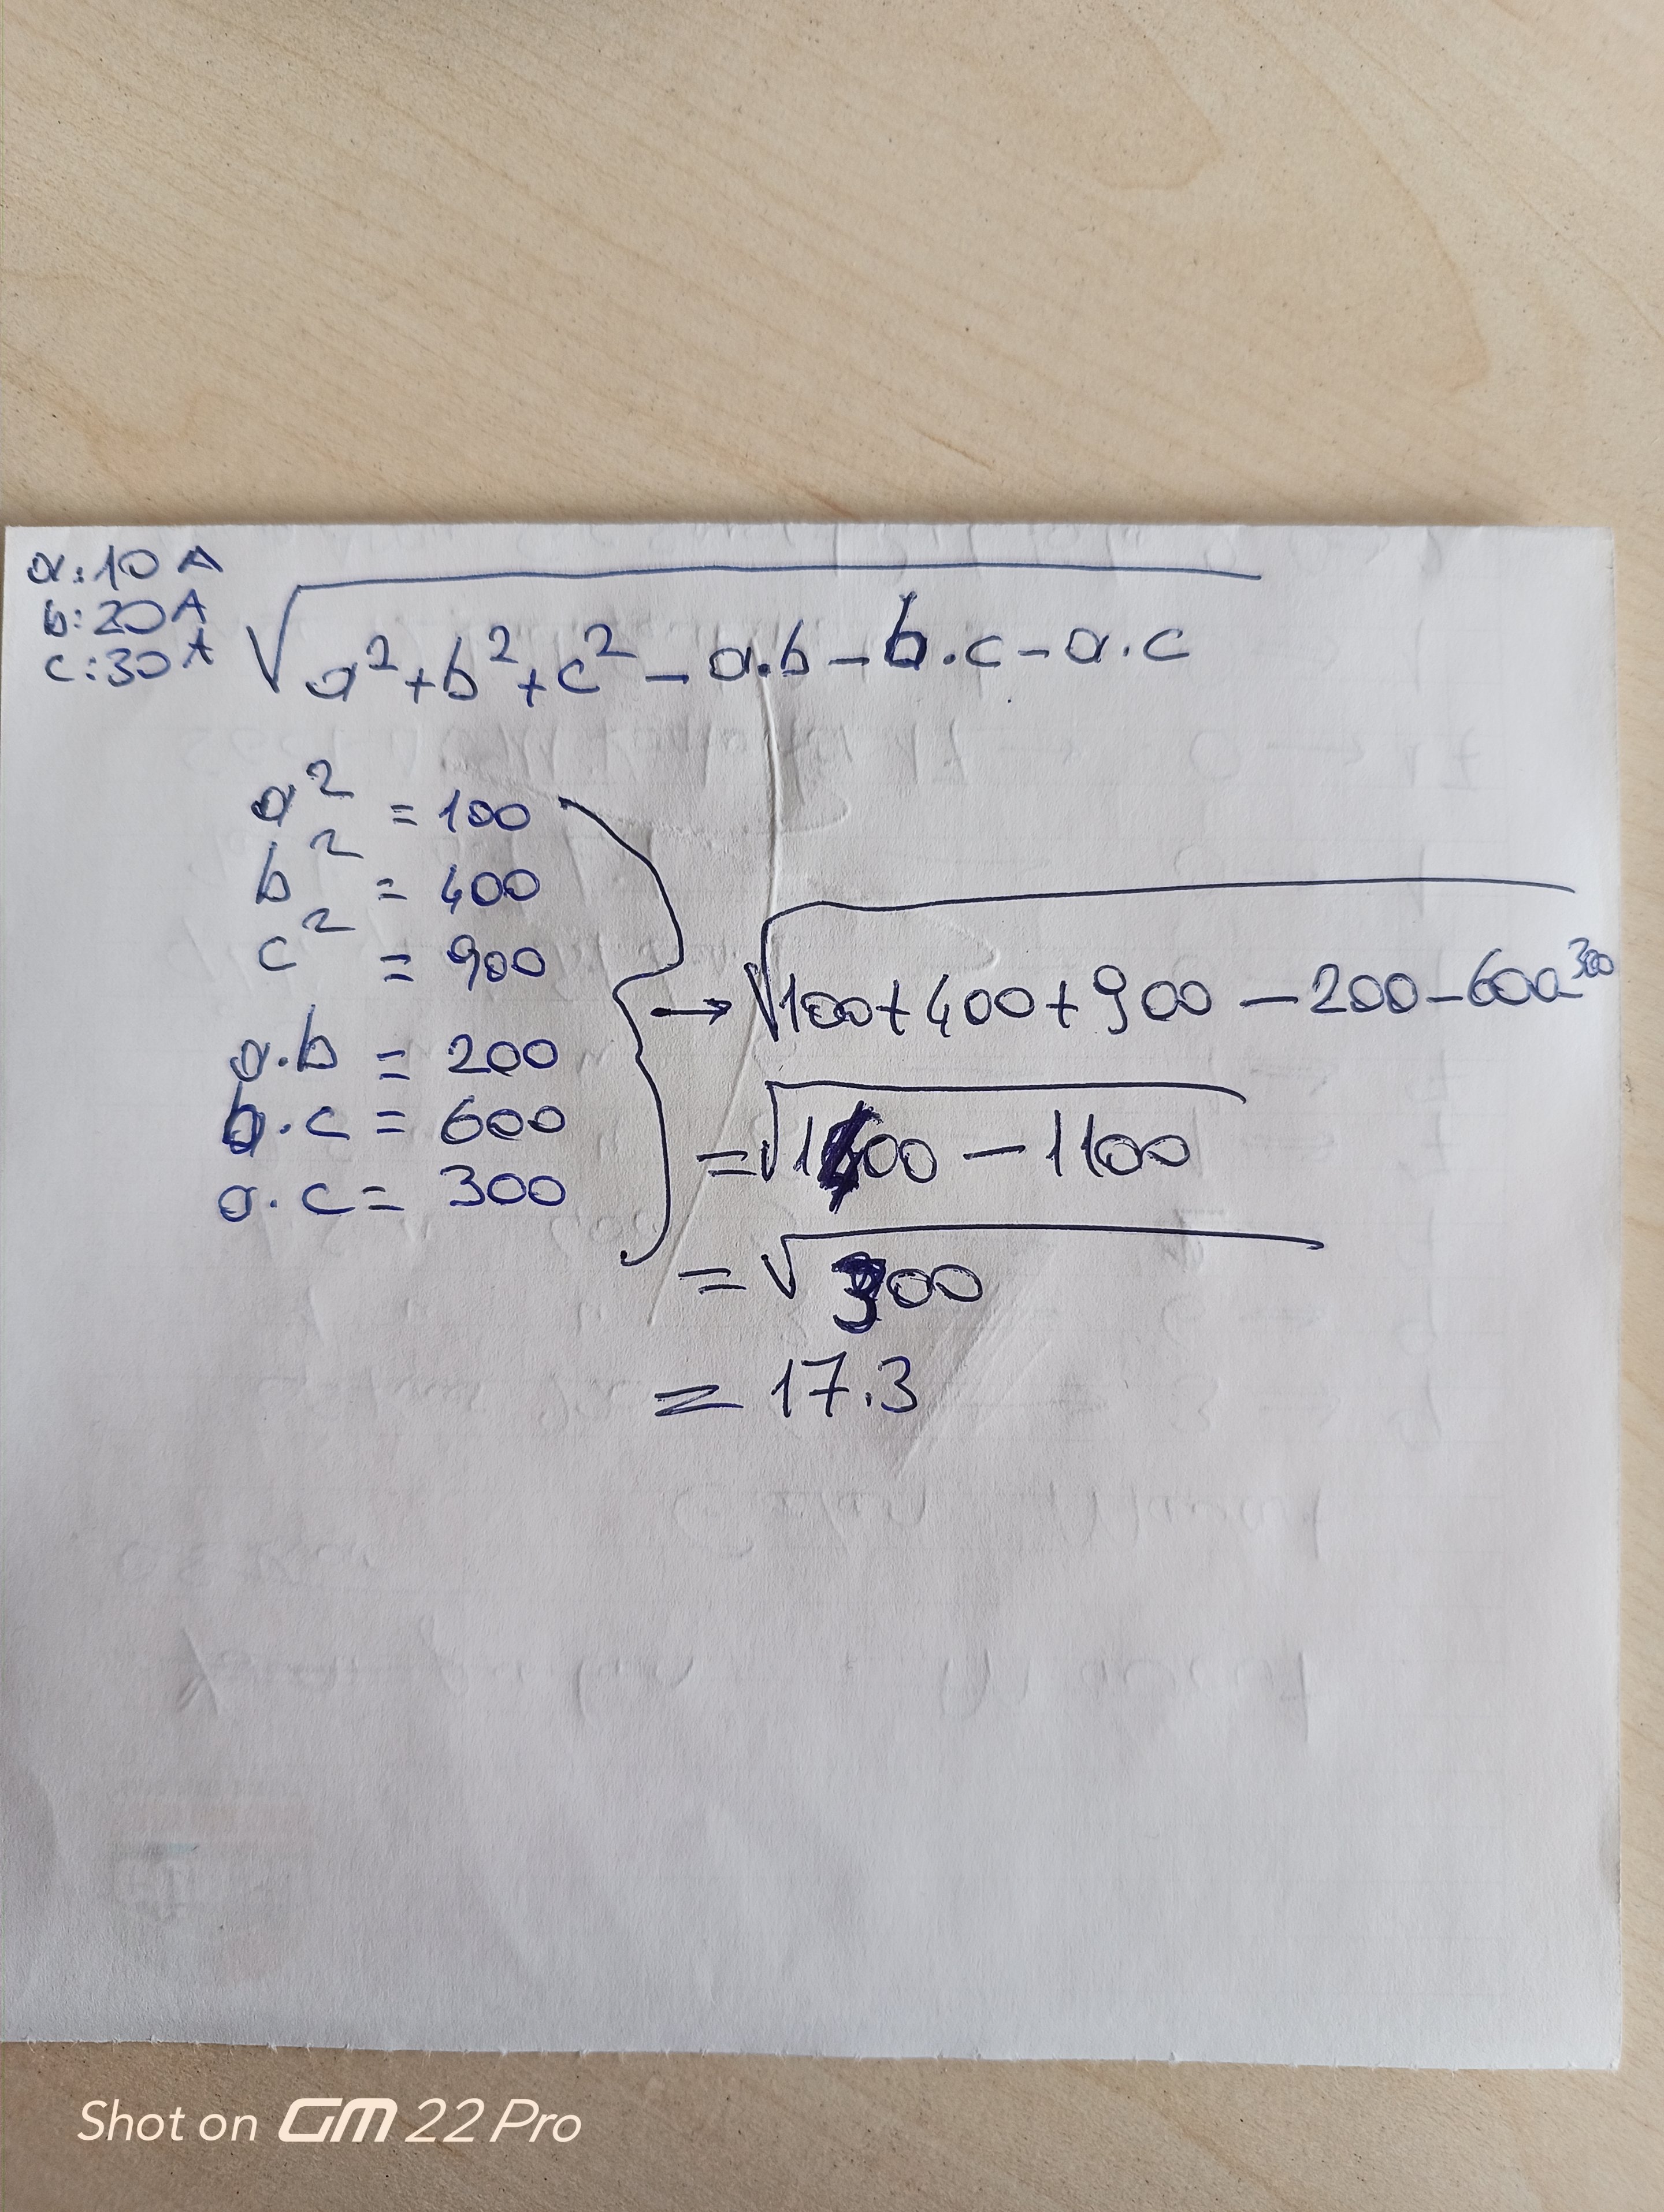 a: 10 A
b: 20 A
c: 30 A
√a²+b²+c²-a.b-b.c-a.c
a² = 100
b² = 400
c² = 900
a.b = 200
b.c = 600
a.c = 300
→ √100+400+900-200-600-300
= √1400-1100
= √300
= 17.3
Shot on GM 22 Pro